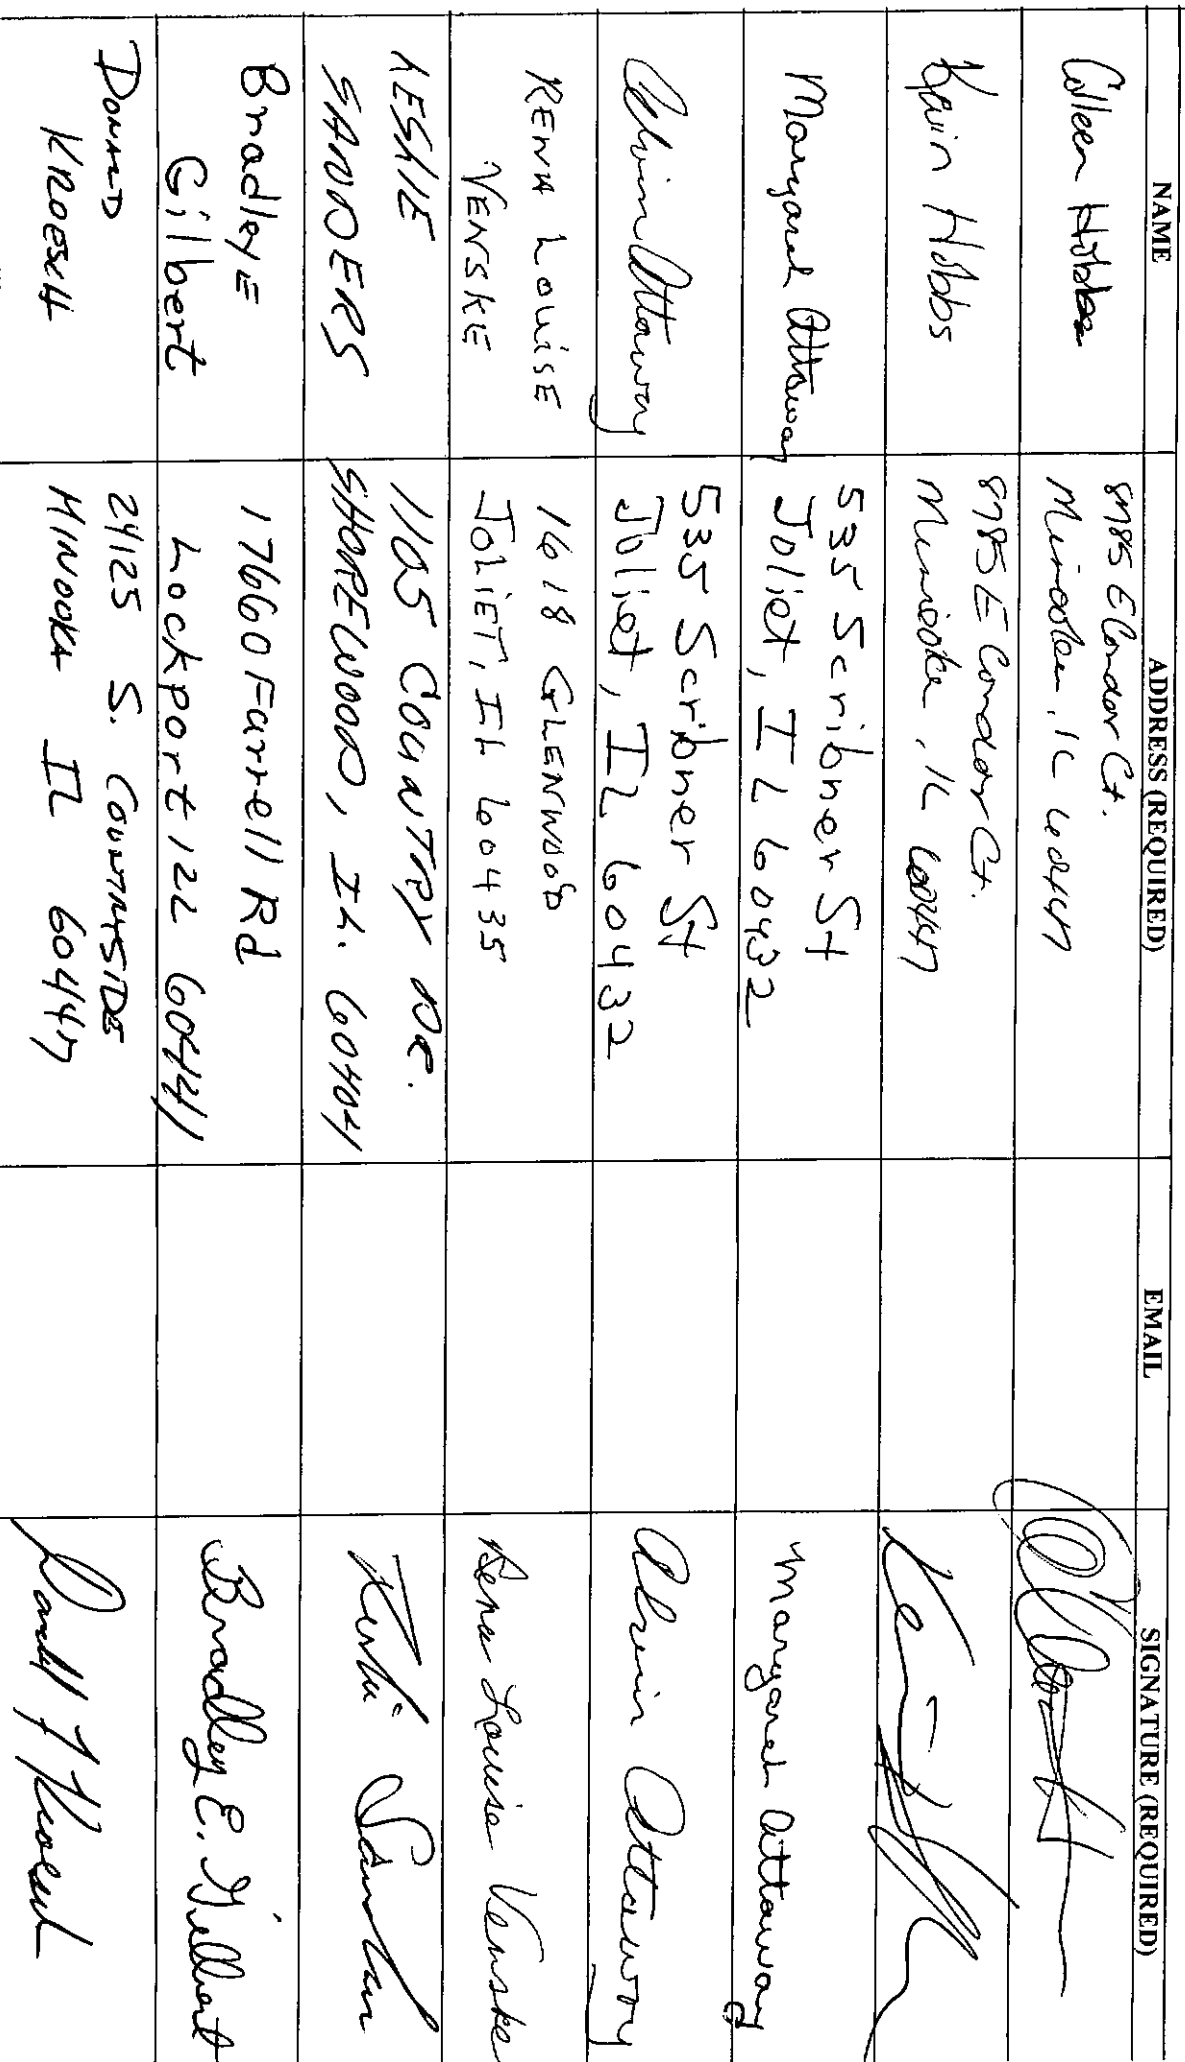 NAME ADDRESS (REQUIRED) EMAIL SIGNATURE (REQUIRED)
Colleen Hobbs
8785 E Condor Ct.
Minooka, IL 60447
Kevin Hobbs
8785 E Condor Ct.
Minooka, IL 60447
Margaret Attaway
535 Scribner St
Joliet, IL 60432
Margaret Attaway
Alvin Attaway
535 Scribner St
Joliet, IL 60432
Alvin Attaway
RENA LOUISE
VENSKE
1618 GLENWOOD
JOLIET, IL 60435
Rena Louise Venske
LESLIE
SANDERS
1105 COUNTRY DR.
SHOREWOOD, IL. 60404
Leslie Sanders
Bradley E
Gilbert
17660 Farrell Rd
Lockport ILL 60441
Bradley E. Gilbert
DONALD
KROESCH
24125 S. COUNTRYSIDE
MINOOKA IL 60447